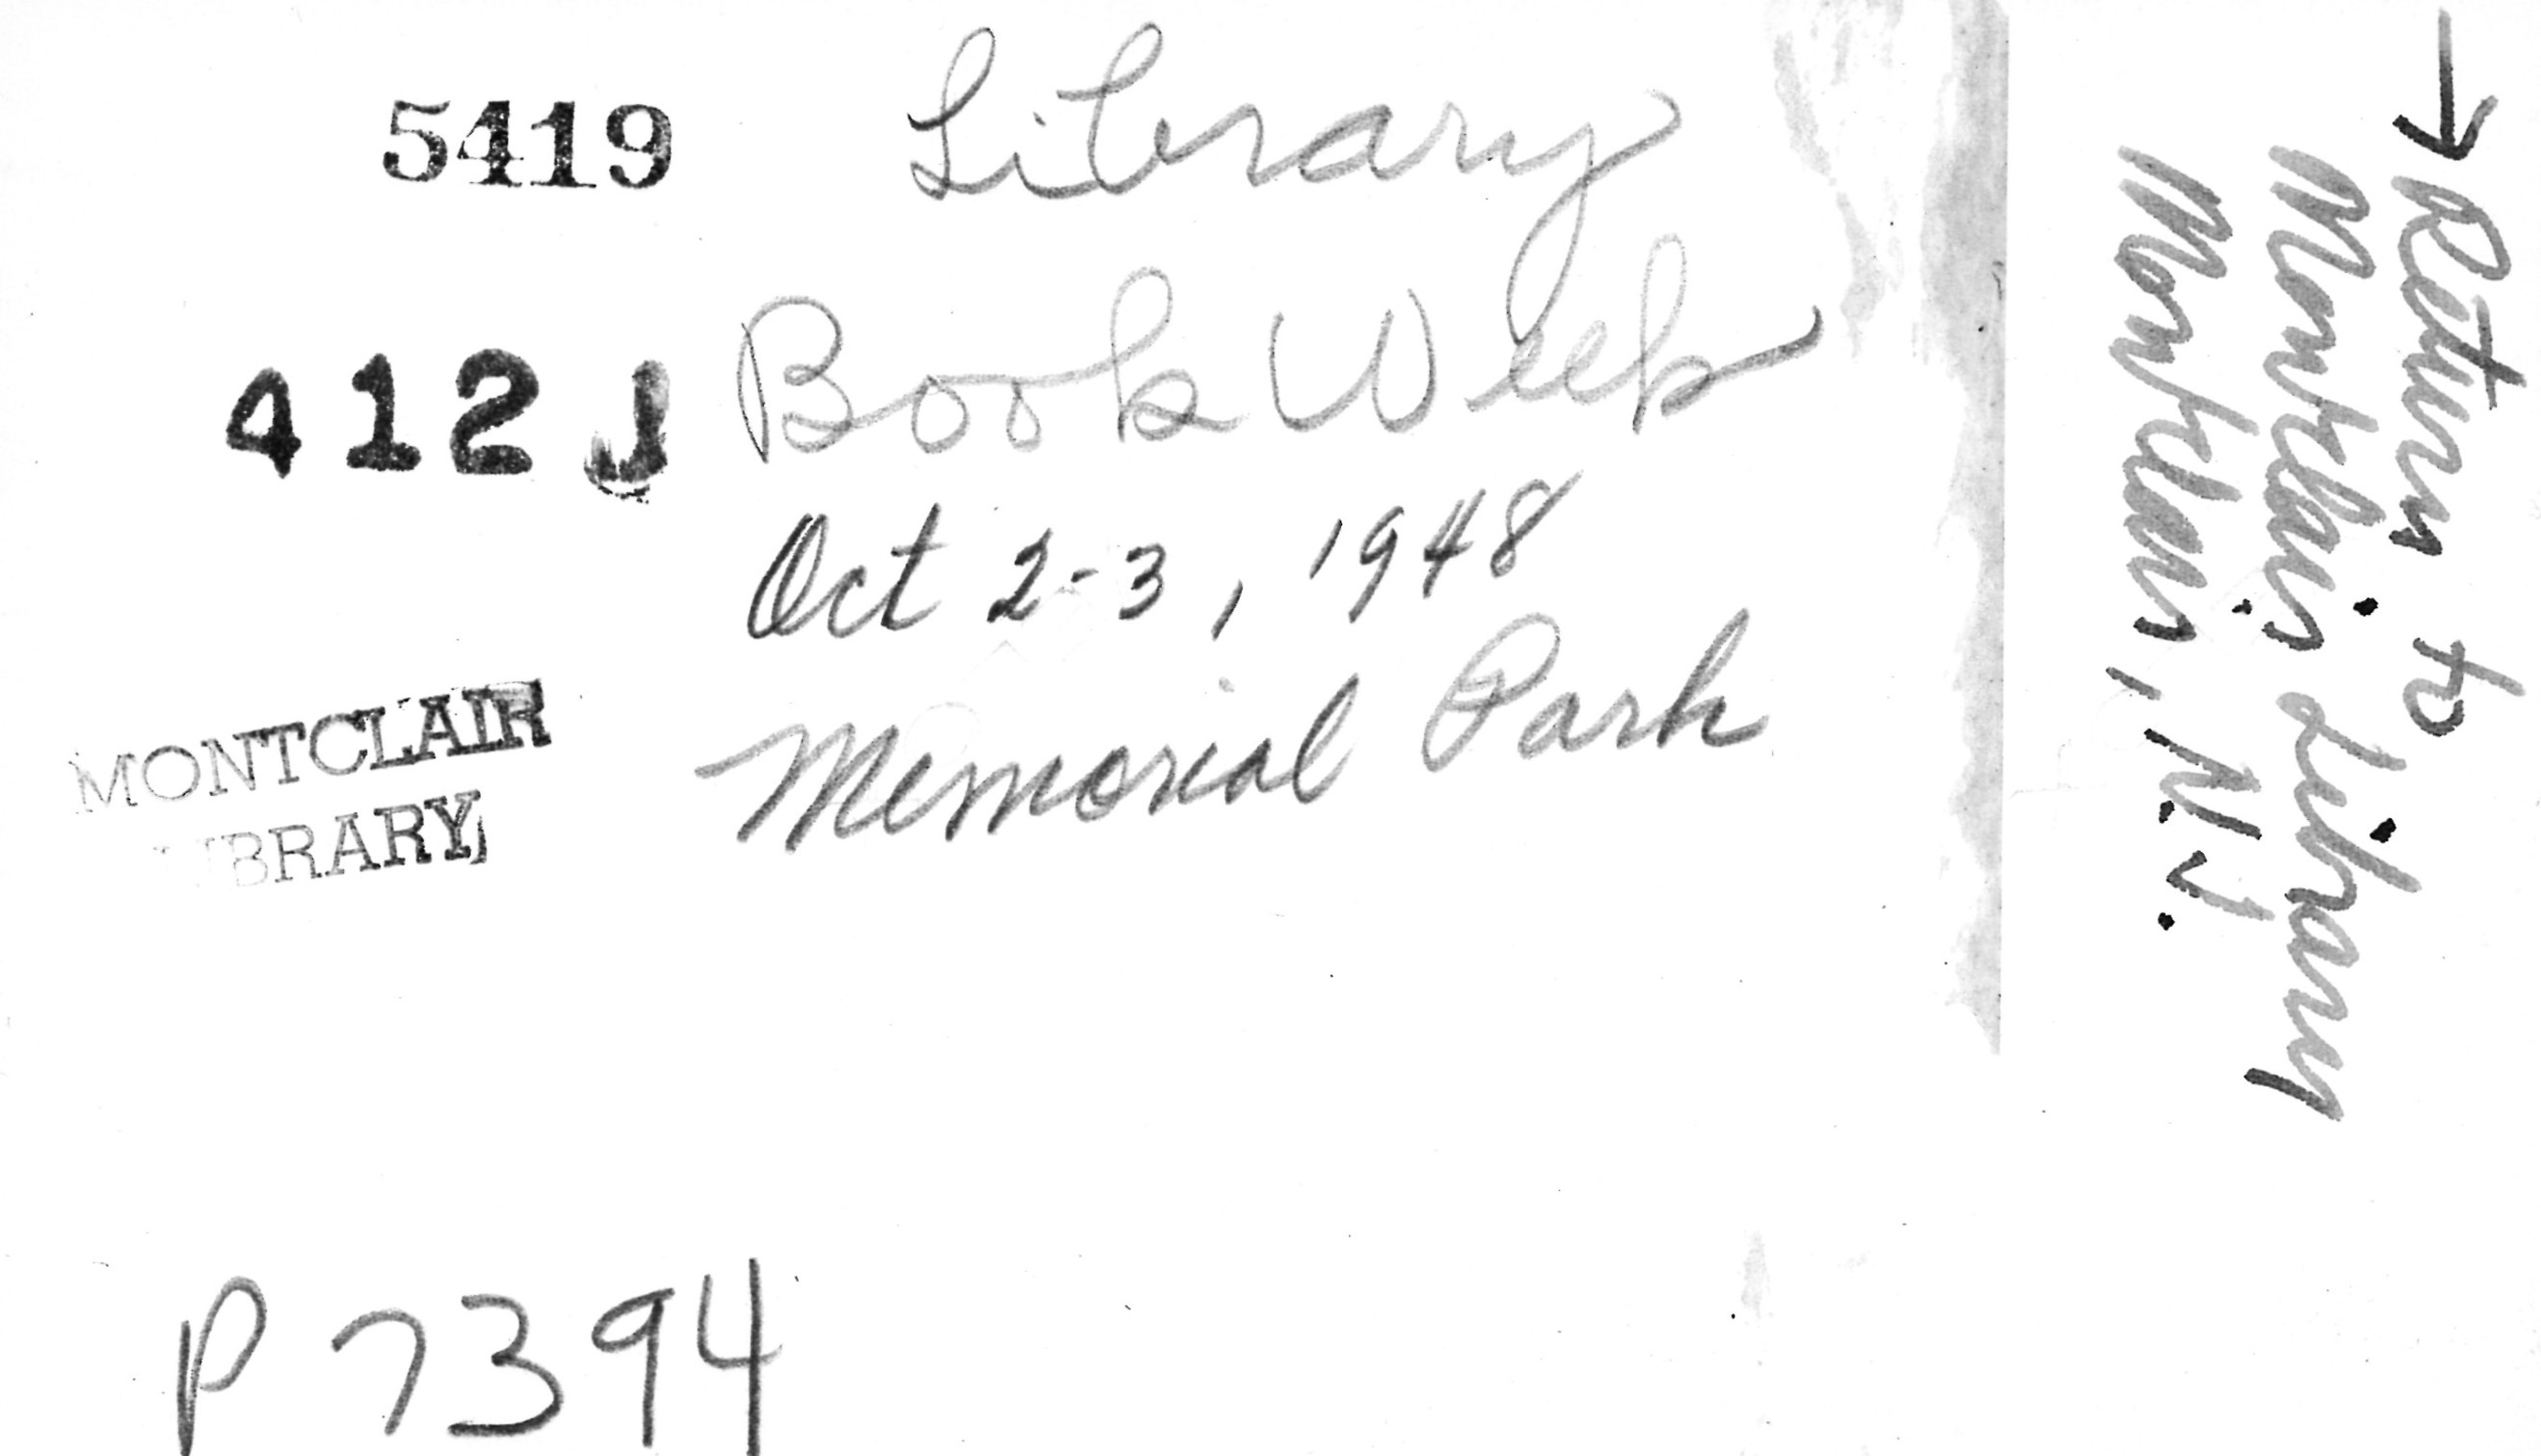 5419
Library
412J
Book Week
Oct 2-3, 1948
Memorial Park
MONTCLAIR
LIBRARY
P7394
→ Return to
Montclair Library
Montclair, N.J.